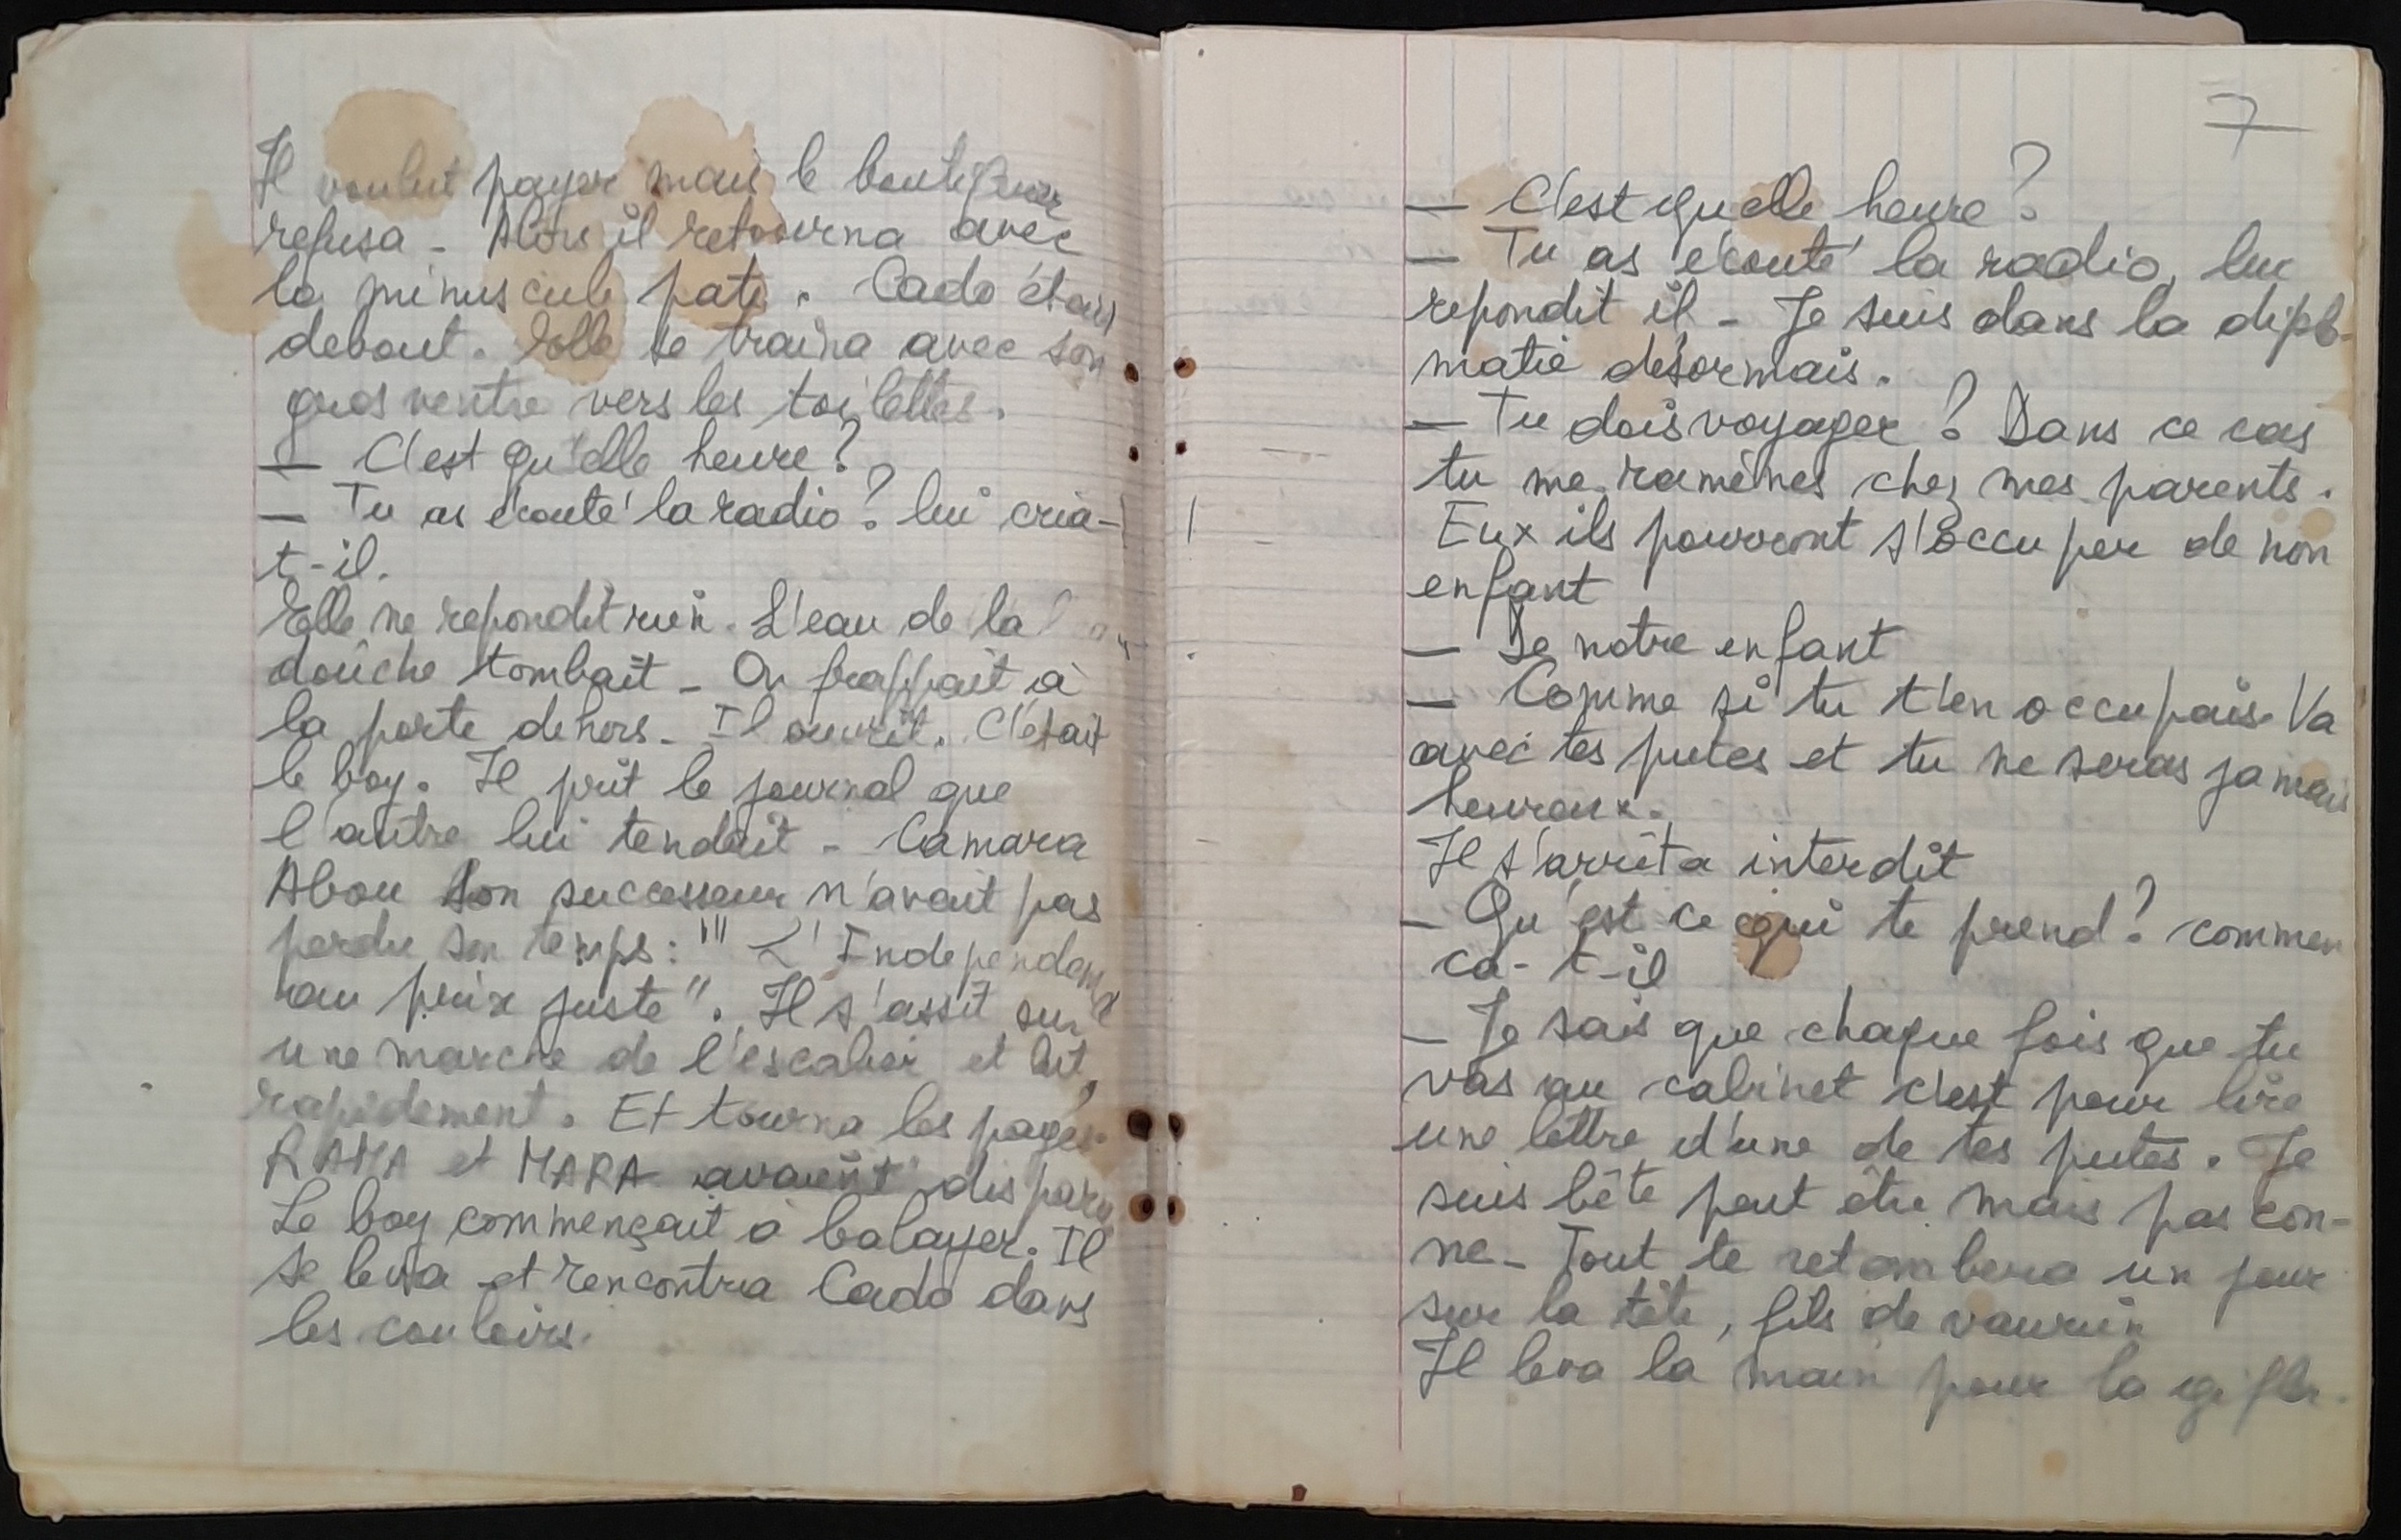 Il voulut payer mais le boutiquier
refusa - Alors il retourna avec
la minuscule pate. Cado était
debout. Elle se traina avec son
gros ventre vers les toilettes.
— C'est qu'elle heure ?
— Tu as écouté la radio ? lui cria-
t-il.
Elle ne repondit rien. L'eau de la
douche tombait - On frappait à
la porte dehors - Il ouvrit. C'était
le boy. Il prit le journal que
l'autre lui tendait - Camara
Abou son successeur n'avait pas
perdu son temps : "L'Independance
au prix juste". Il s'assit sur
une marche de l'escalier et lut,
rapidement. Et tourna les pages.
RAMA et MARA avaient disparu
Le boy commençait à balayer. Il
se leva et rencontra Cado dans
les couloirs.
7
— C'est qu'elle heure ?
— Tu as écouté la radio, lui
repondit il - Je suis dans la diplo-
matie désormais.
— Tu dois voyager ? Dans ce cas
tu me ramènes chez mes parents.
Eux ils pourront s'occuper de mon
enfant
— De notre enfant
— Comme si tu t'en occupais. Va
avec tes putes et tu ne seras jamais
heureux.
Il s'arrêta interdit
- Qu'est ce qui te prend ? commen
ca-t-il
- Je sais que chaque fois que tu
vas au cabinet c'est pour lire
une lettre d'une de tes putes. Je
suis bête peut être mais pas con-
ne - Tout te retombera un jour
sur la tête, fils de vaurien
Il leva la main pour la gifler.